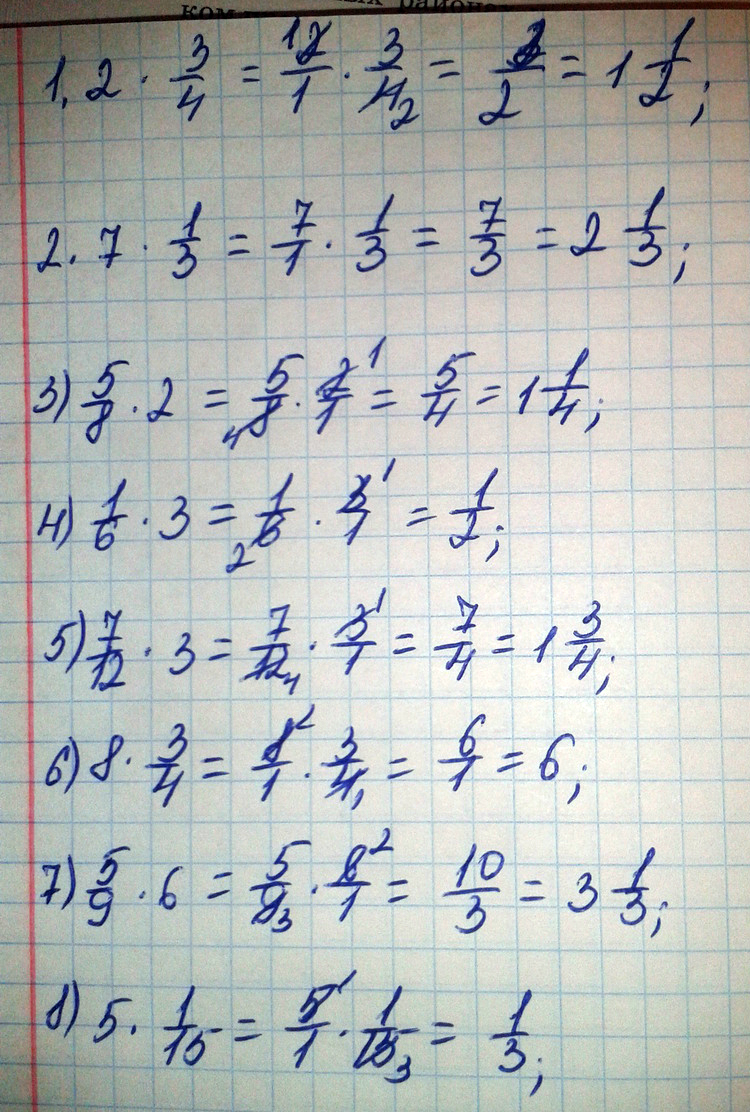 ком районе
1. 2 · 3/4 = 2/1 · 3/4 = 3/2 = 1 1/2;
2. 7 · 1/3 = 7/1 · 1/3 = 7/3 = 2 1/3;
3) 5/8 · 2 = 5/8 · 2/1 = 5/4 = 1 1/4;
4) 1/6 · 3 = 1/6 · 3/1 = 1/2;
5) 7/12 · 3 = 7/12 · 3/1 = 7/4 = 1 3/4;
6) 8 · 3/4 = 8/1 · 3/4 = 6/1 = 6;
7) 5/9 · 6 = 5/9 · 6/1 = 10/3 = 3 1/3;
8) 5 · 1/15 = 5/1 · 1/15 = 1/3;